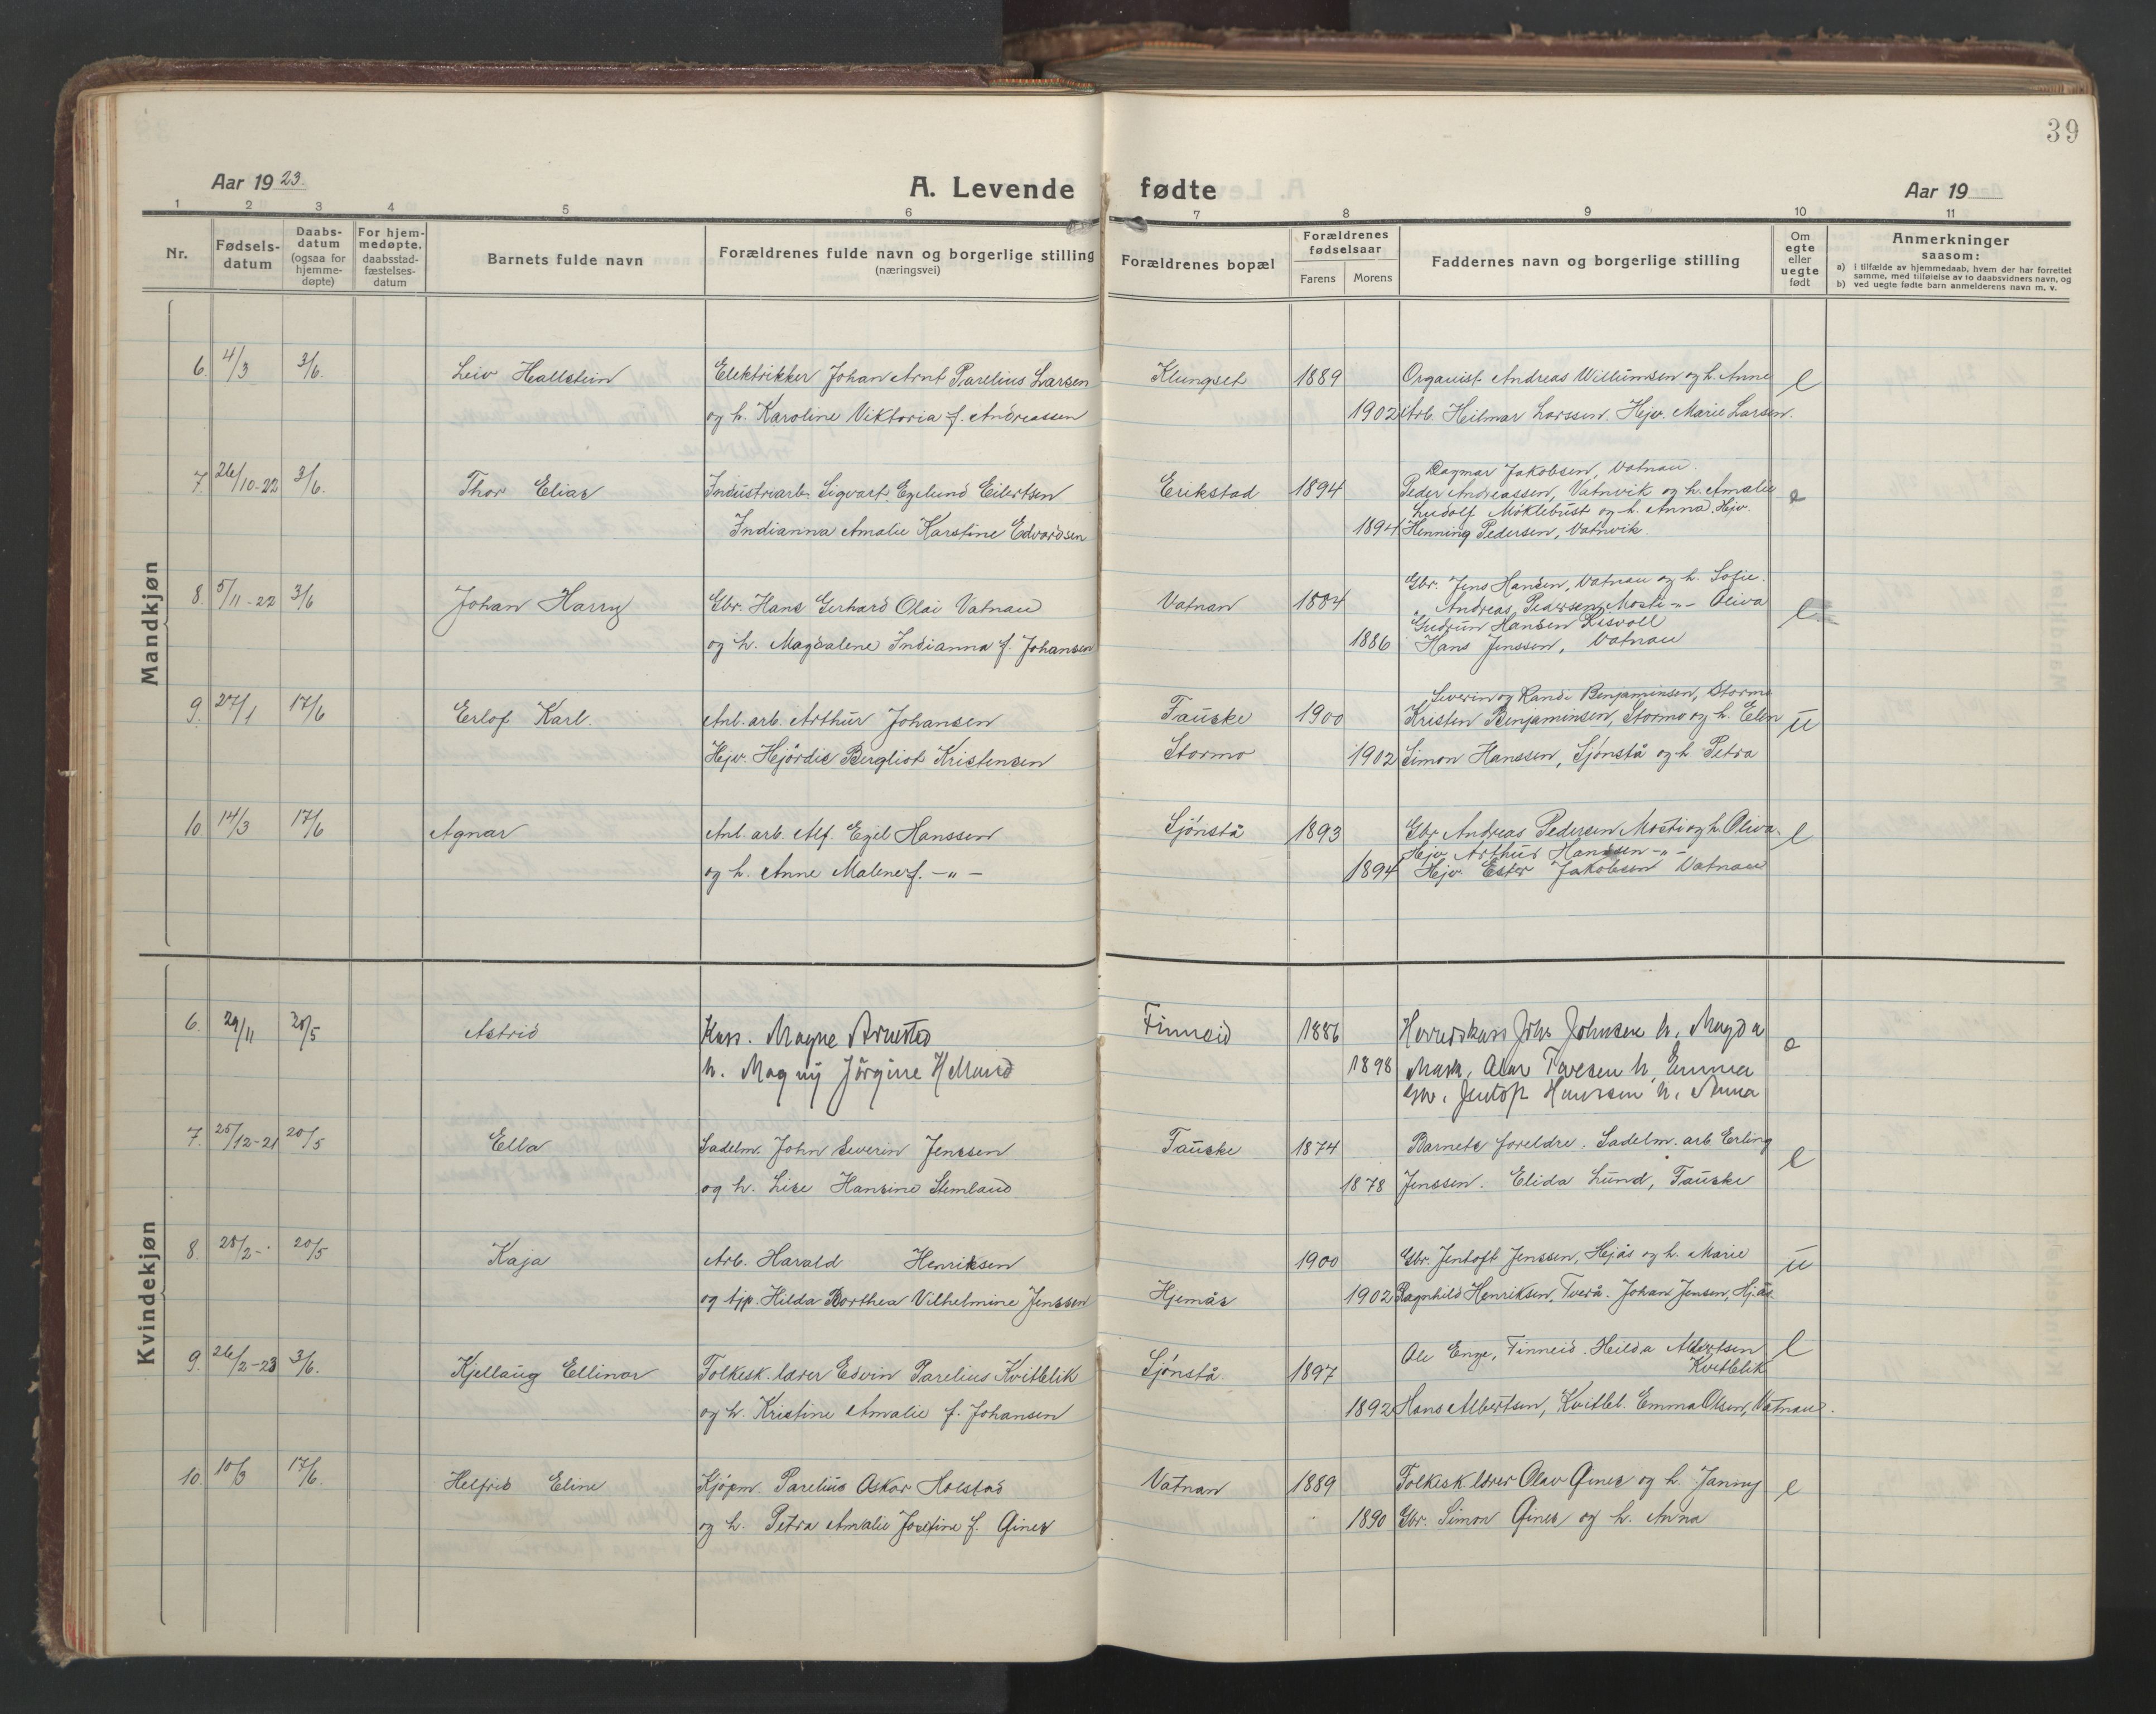 39
Aar 1923.
A. Levende fødte
Aar 19
1 2 3 4 5 6 7 8 9 10 11
Nr.
Fødsels-
datum
Daabs-
datum
(ogsaa for
hjemme-
døpte)
For hjem-
medøpte,
daabsstad-
fæstelses-
datum
Barnets fulde navn
Forældrenes fulde navn og borgerlige stilling
(næringsvei)
Forældrenes bopæl
Forældrenes
fødselsaar
Farens Morens
Faddernes navn og borgerlige stilling
Om
egte
eller
uegte
født
Anmerkninger
saasom:
a) i tilfælde av hjemmedaab, hvem der har forrettet
samme, med tilføielse av to daabsvidners navn, og
b) ved uegte fødte barn anmelderens navn m. v.
Mandkjøn
6. 4/3 3/6. Leiv Hallstein Elektrikker Johan Arnt Parelius Larsen Klungset 1889 Organist Andreas Willumsen og h. Anne e
og h. Karoline Viktoria f. Andreassen 1902 Arb. Heilmar Larssen. Hejv. Marie Larsen.
Dagmar Jakobsen, Vatnan.
7. 26/10-22 3/6. Thor Elias Industriarb. Sigvart Egelund Eibertsen Erikstad 1894 Peder Andreassen, Vatnvik og h. Amalie e
Ludolf Møklebust og h. Anna. Hjv.
Indianna Amalie Karstine Edvardsen 1894 Henning Pedersen, Vatnvik.
Gbr. Jens Hansen, Vatnan og h. Sofie.
8. 5/11-22 3/6 Johan Harry Gbr. Hans Gerhard Olai Vatnan Vatnan 1884 " Andreas Pedersen Mosti -"- Oliva e
Gudrun Hansen Røsvoll
og h. Magdalene Indianna f. Johansen 1886 Hans Jenssen, Vatnan
Severin og Randi Benjaminsen, Stormo
9. 27/1 17/6 Erlof Karl. Anl. arb. Arthur Johansen Fauske 1900 Kristen Benjaminsen, Stormo og h. Elen u
Hejv. Hejørdis Bergliot Kristensen Stormo 1902 Simon Hanssen, Sjønstå og h. Petra
10 14/3 17/6 Agnar Anl. arb. Alf. Egil Hanssen Sjønstå 1893 Gbr Andreas Pedersen Mosti og h. Oliva. e
Hejv. Arthur Hanssen -"-
og h. Anne Malene f. -"- 1894 Hejv. Ester Jakobsen Vatnan
Kvindekjøn
6. 29/11 20/5 Astrid Kass. Magne Finneid 1886 Herredskass Johs Johnsen h. Magda e
h. Magny Jørgine Helland 1898 h. Emma
h. Anna
7. 25/12-21 20/5 Ella Sadelm. John Severin Jenssen Fauske 1874 Barnets foreldre. Sadelm. arb Erling e
og h. Lise Hansine Stemland 1878 Jenssen. Elida Lund, Fauske
8. 28/2-. 20/5 Kaja Arb. Harald Henriksen 1900 Gbr. Jentoft Jenssen, Hjås og h. Marie u
og tjp. Hilda Borthea Vilhelmine Jenssen Hjemås 1902 Ragnhild Henriksen, Tverå. Johan Jensen, Hjås.
9. 26/2-23 3/6. Kjellaug Ellinor Folkesk. lærer Edvin Parelius Kvitblik Sjønstå. 1897 Ole Enge, Finneid. Heilda Albertsen e
Kvitblik
og h. Kristine Amalie f. Johansen 1892 Hans Albertsen, Kvitbl. Emma Olsen, Vatnan.
10. 10/3 17/6. Helfrid Eline Kjøpm. Parelius Oskar Holstad Vatnan 1889 Folkesk. lærer Olav Giner og h. Janny e
og h. Petra Amalie Josefine f. Giner 1890 Gbr. Simon Giner og h. Anna